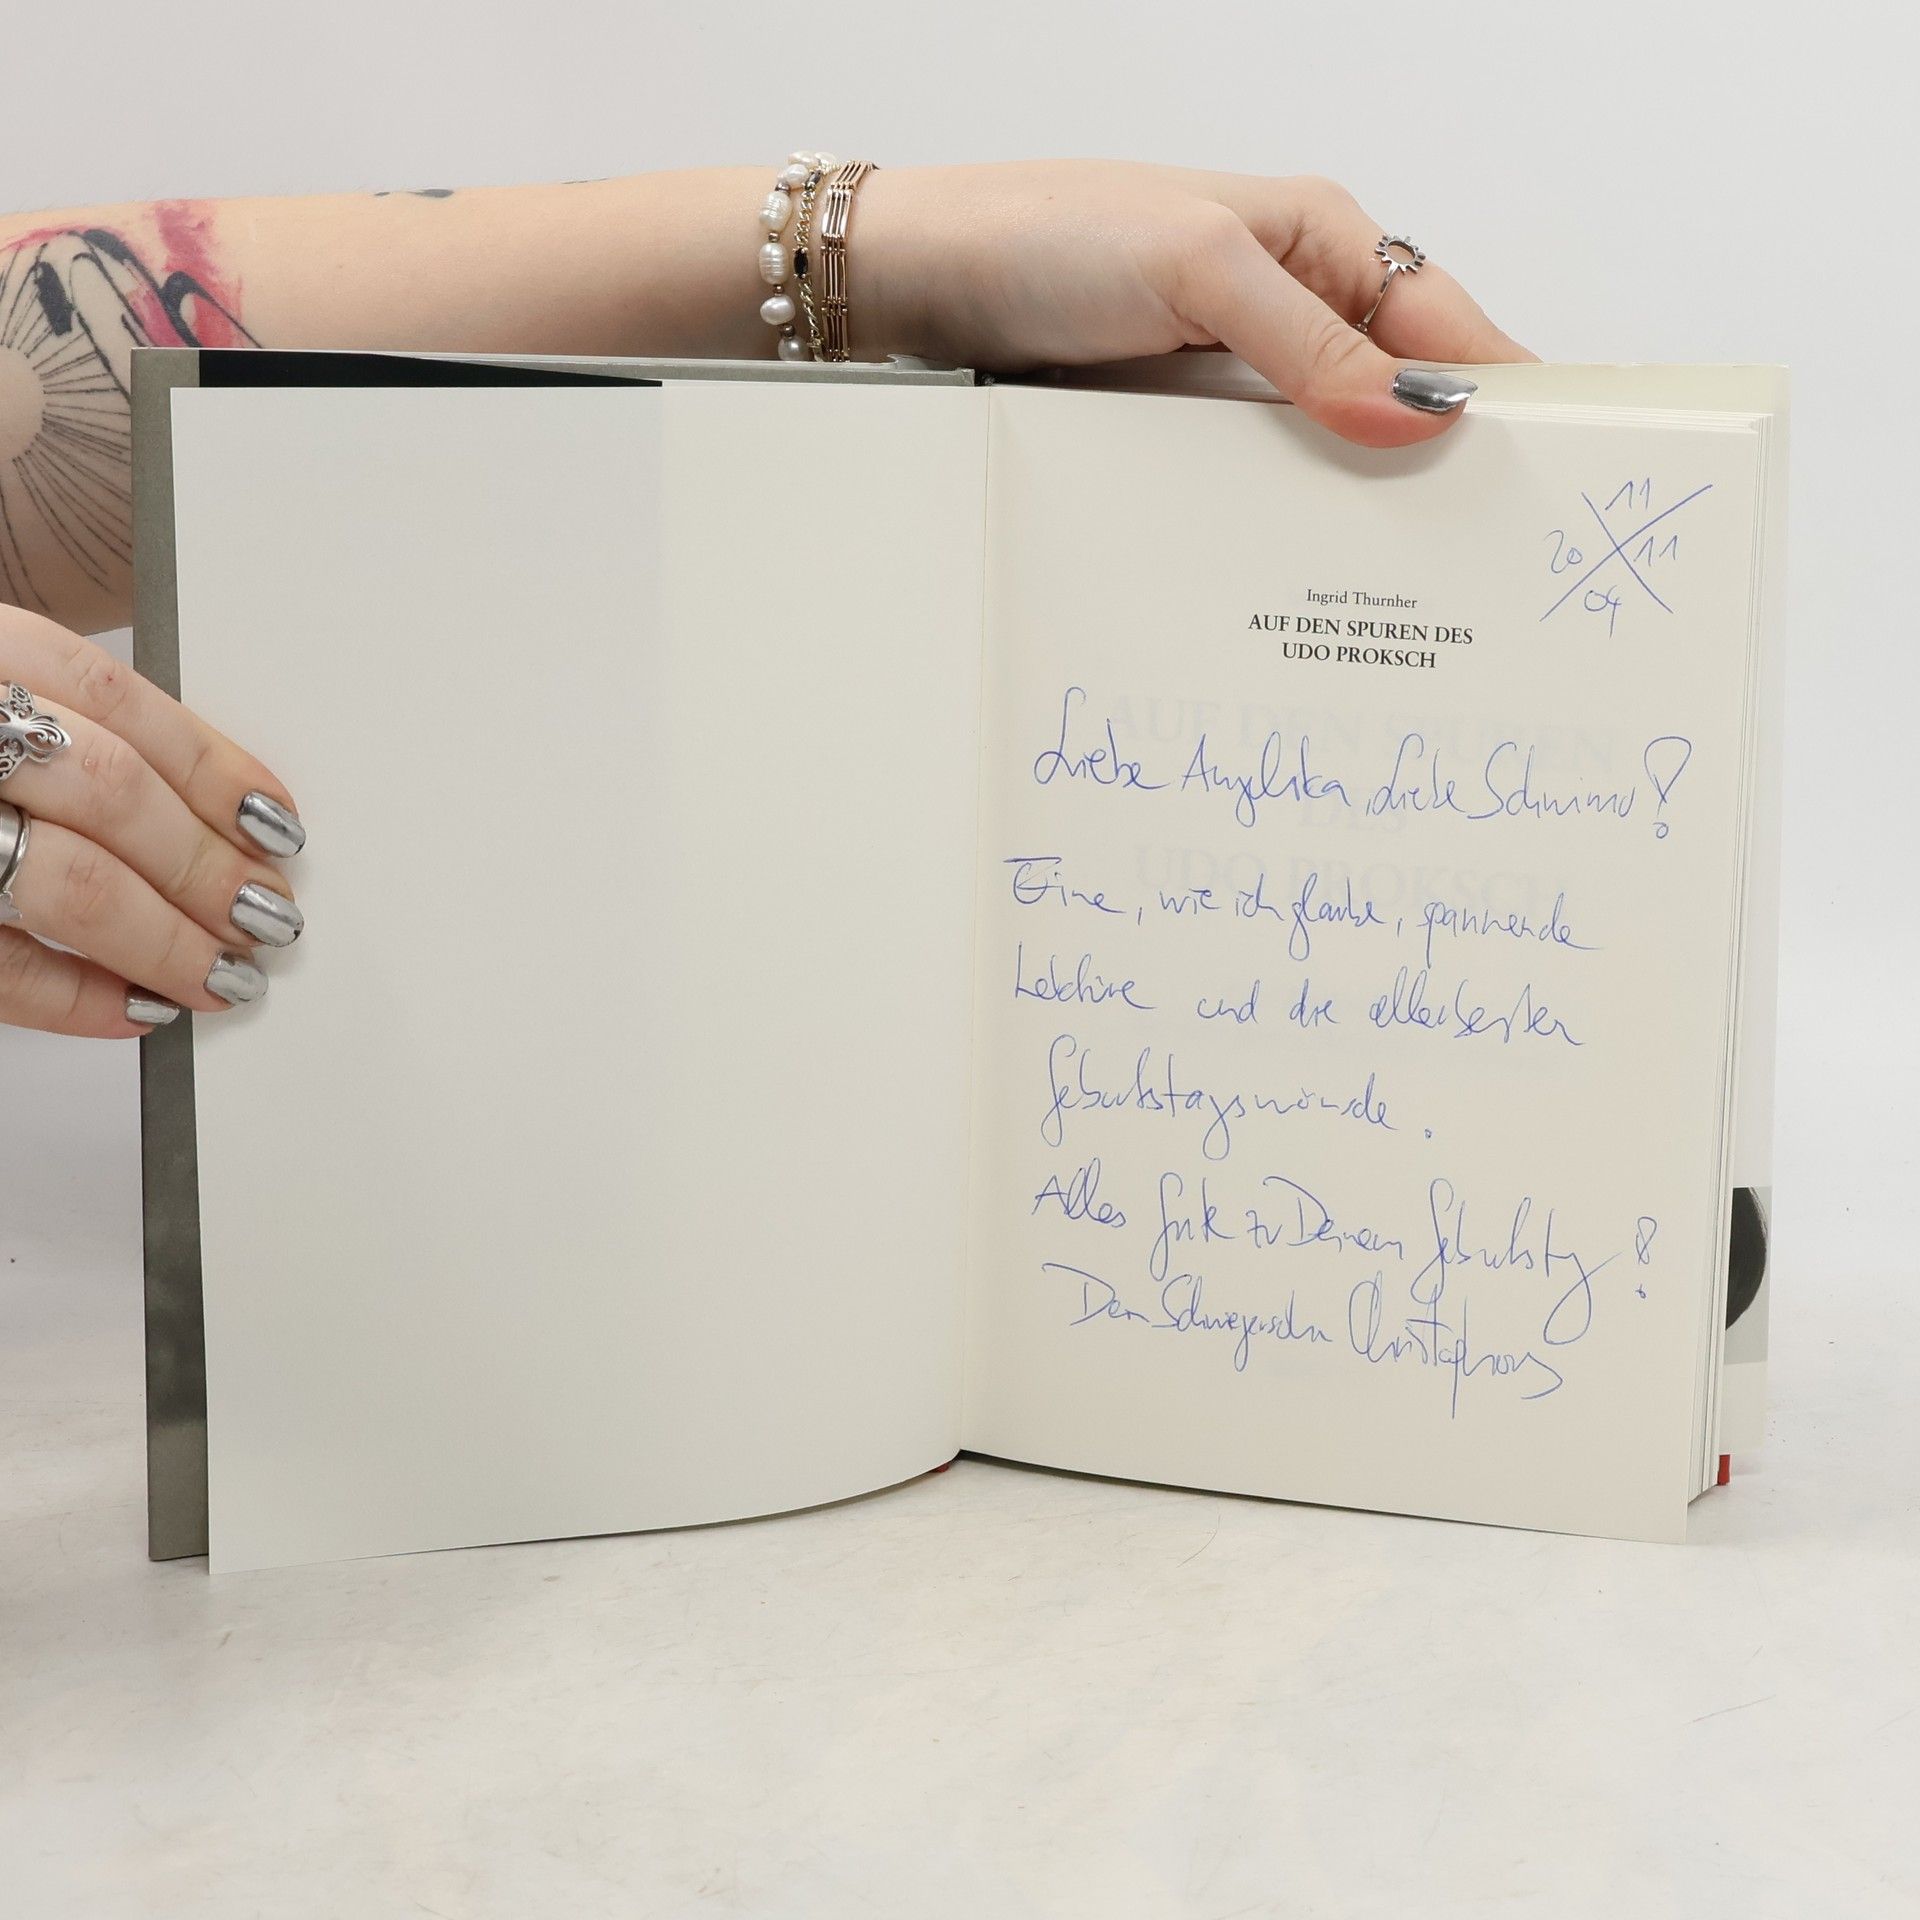 11
20 11
04
Ingrid Thurnher
AUF DEN SPUREN DES
UDO PROKSCH
Liebe Angelika, Liebe Schwimu!
Eine, wie ich glaube, spannende
Lektüre und die allerbesten
Geburtstagswünsche.
Alles Gute zu Deinem Geburtstag!
Dein Schwiegersohn Christophorus
AUF DEN SPUREN
DES
UDO PROKSCH